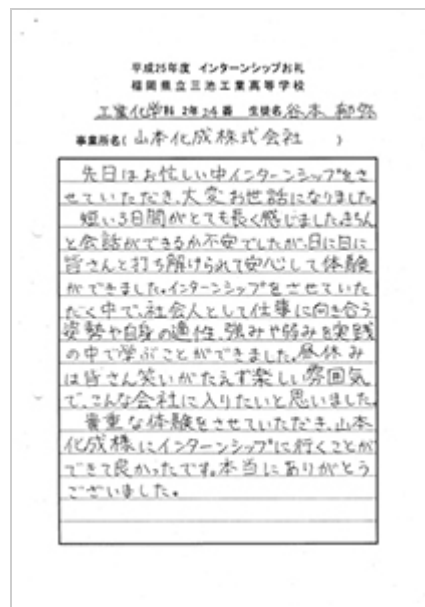 平成25年度 インターンシップお礼
福岡県立三池工業高等学校
工業化学科 2年24番 生徒名 谷本
事業所名( 山本化成株式会社 )
先日はお忙しい中インターンシップをさ
せていただき、大変お世話になりました。
短い3日間がとても長く感じました。きちん
と会話ができるか不安でしたが、日に日に
皆さんと打ち解けられて安心して体験
ができました。インターンシップをさせていた
だく中で、社会人として仕事に向き合う
姿勢や自身の適性、強みや弱みを実践
の中で学ぶことができました。昼休み
は皆さん笑いがたえず楽しい雰囲気
で、こんな会社に入りたいと思いました。
貴重な体験をさせていただき、山本
化成様にインターンシップに行くことが
できて良かったです。本当にありがとう
ございました。